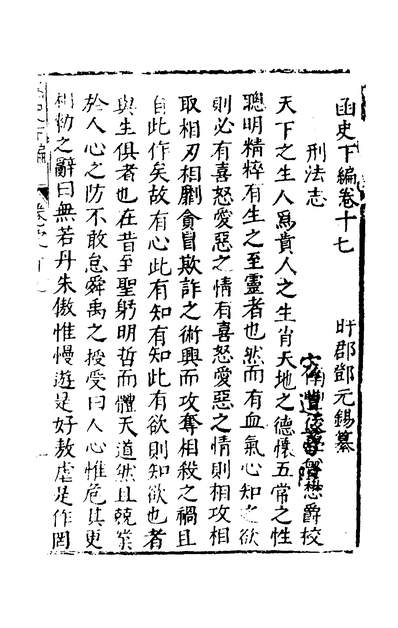 函史下編卷十七
盱郡鄧元錫纂
刑法志
爵校
天下之生人爲貴人之生肖天地之德懷五常之性
聰明精粹有生之至靈者也然而有血氣心知之欲
則必有喜怒愛惡之情有喜怒愛惡之情則相攻相
取相刃相劘貪冒欺詐之術興而攻奪相殺之禍且
自此作矣故有心此有知有知此有欲則知欲也者
與生俱者也在昔至聖躬明哲而體天道然且兢業
於人心之防不敢怠舜禹之授受曰人心惟危其更
相勑之辭曰無若丹朱傲惟慢遊是好敖虐是作罔